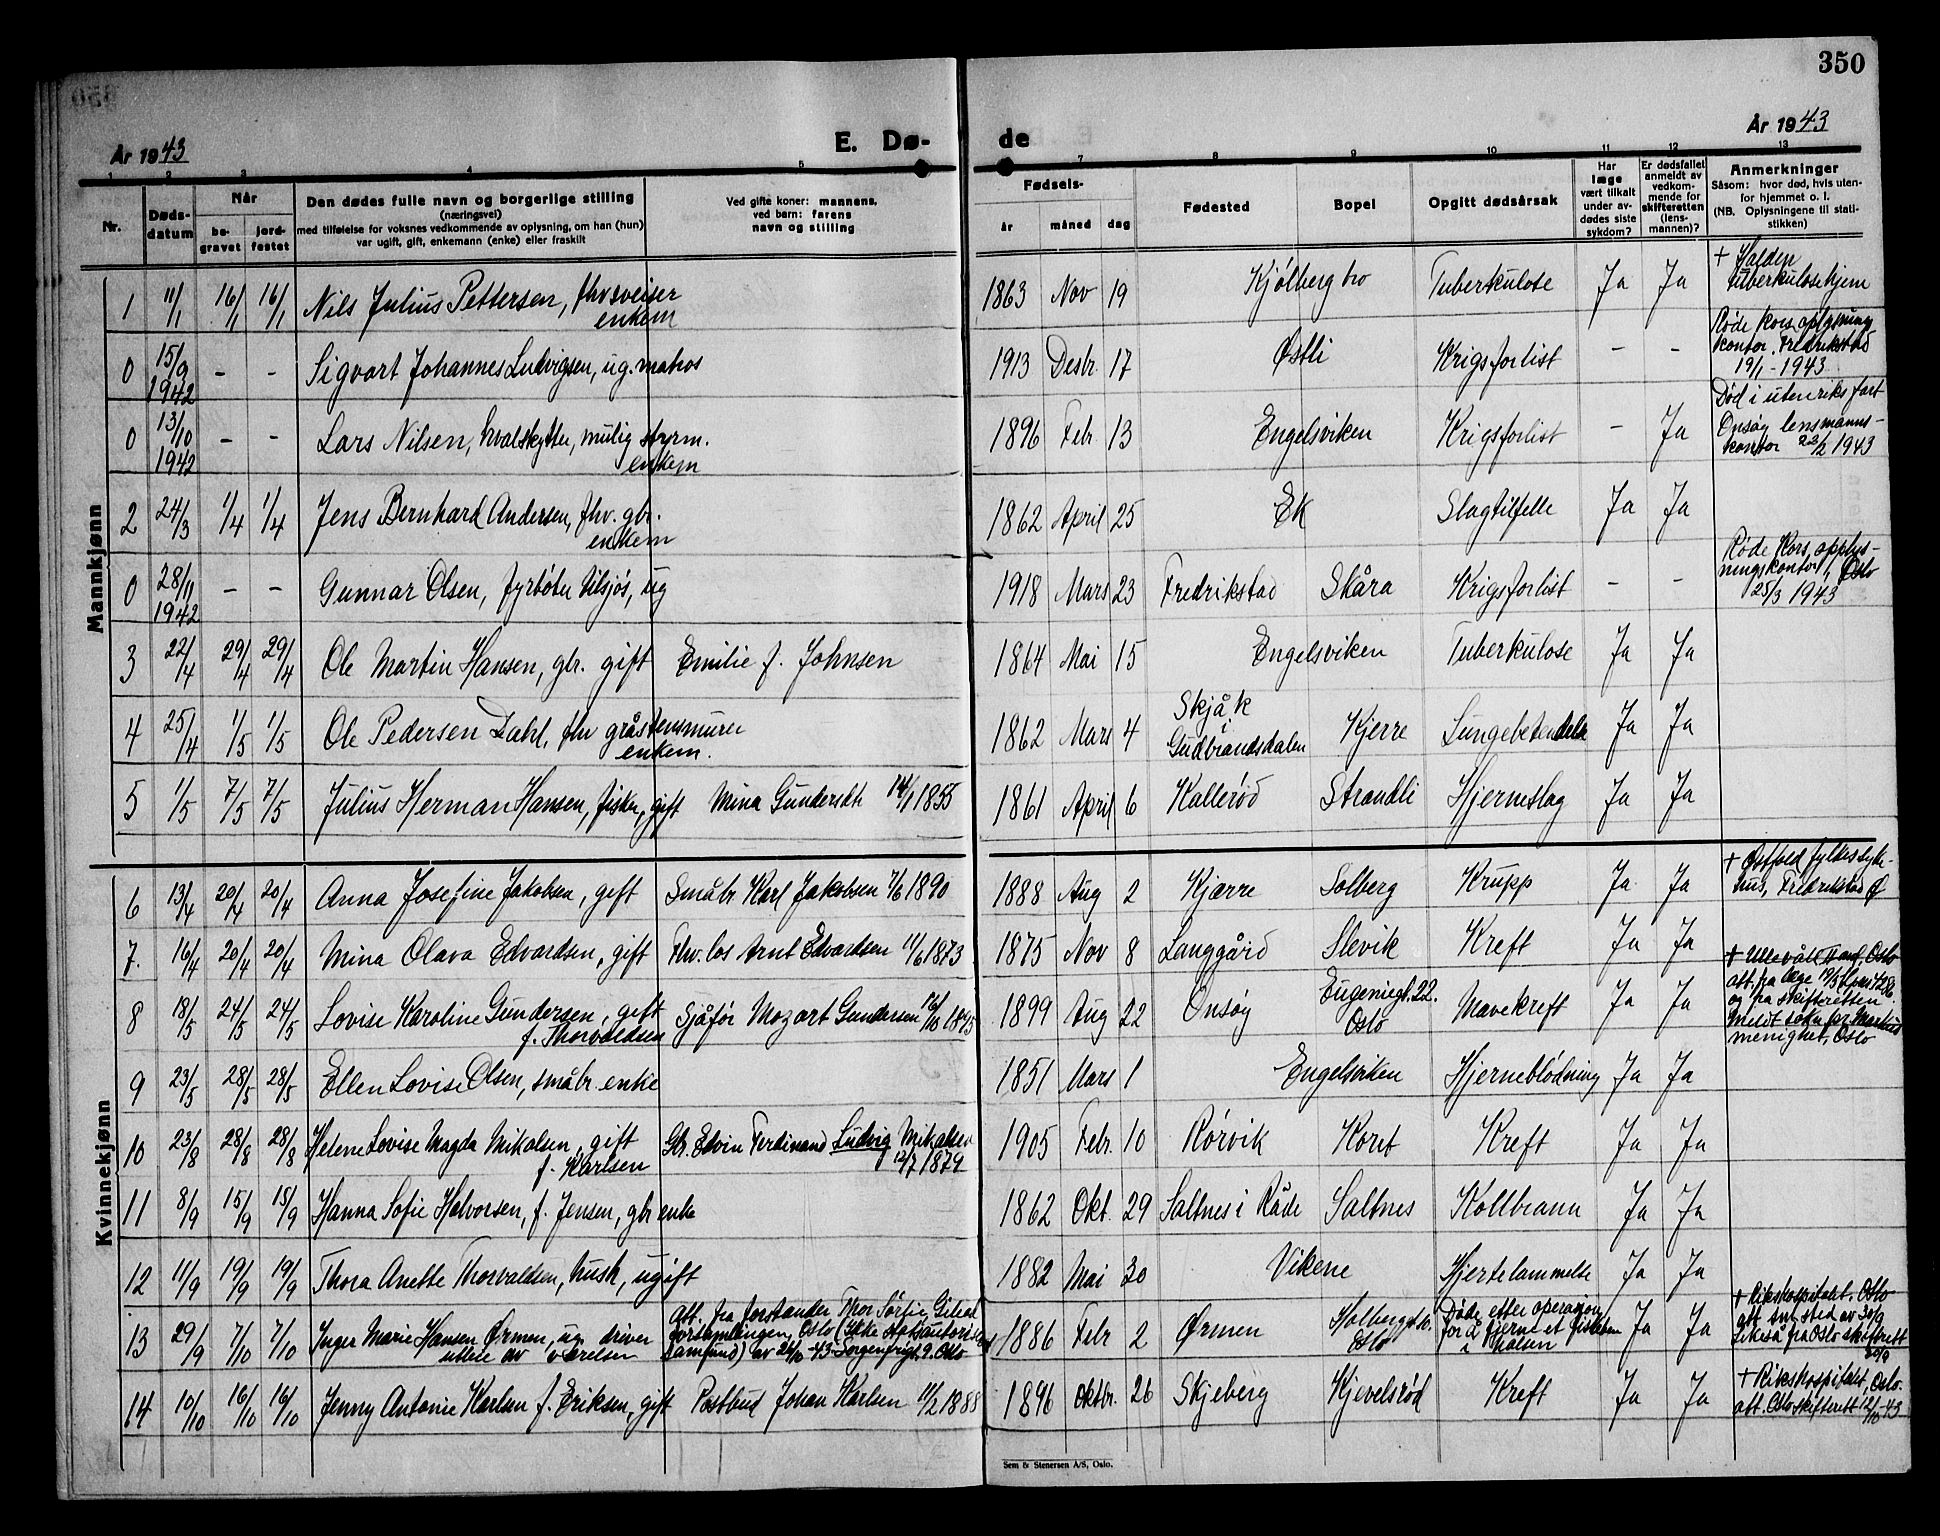 350
År 1943
E. Dø-
de
År 1943
1 2 3 4 5
7 8 9 10 11 12 13
Nr.
Døds-
datum
Når
be-
gravet
jord-
festet
Den dødes fulle navn og borgerlige stilling
(næringsvei)
med tilføielse for voksnes vedkommende av oplysning, om han (hun)
var ugift, gift, enkemann (enke) eller fraskilt
Ved gifte koner: mannens,
ved barn: farens
navn og stilling
Fødsels-
år måned dag
Fødested
Bopel
Opgitt dødsårsak
Har
læge
vært tilkalt
under av-
dødes siste
sykdom?
Er dødsfallet
anmeldt av
vedkom-
mende for
skifteretten
(lens-
mannen)?
Anmerkninger
Såsom: hvor død, hvis uten-
for hjemmet o. l.
(NB. Oplysningene til stati-
stikken)
Mannkjønn
1 11/1 16/1 16/1 Nils Julius Pettersen, fhv sveiser
enkem
1863 Nov 19 Kjølberg bro Tuberkulose Ja Ja
+ Halden
tuberkulosehjem
0 15/9 1942 - - Sigvart Johannes Ludvigsen, ug. matros
1913 Desbr. 17 Østli Krigsforlist - -
Røde Kors oplysning
kontor, Fredrikstad
19/1 - 1943
0 13/10 1942 - - Lars Nilsen, hvalskytter, mulig styrm.
enkem
1896 Febr 13 Engelsviken Krigsforlist - Ja
Død i utenriks fart
Onsøy lensmanns-
kontor 23/2 1943
2 24/3 1/4 1/4 Jens Bernhard Andersen, fhv. gbr.
enkem
1862 April 25 Ek Slagtilfelle Ja Ja
0 28/11 1942 - - Gunnar Olsen, fyrbøter tilsjøs, ug
1918 Mars 23 Fredrikstad Skåra Krigsforlist - -
Røde Kors, opplys-
ningskontor, Oslo
25/3 1943
3 22/4 29/4 29/4 Ole Martin Hansen, gbr. gift Emilie f. Johnsen
1864 Mai 15 Engelsviken Tuberkulose Ja Ja
4 25/4 1/5 1/5 Ole Pedersen Dahl, fhv gråstensmurer
enkem.
1862 Mars 4 Skjåk i Gudbrandsdalen Kjerre Lungebetendelse Ja Ja
5 1/5 7/5 7/5 Julius Herman Hansen, fisker, gift Mina Gundersdtr 14/1 1855
1861 April 6 Kallerød Strandli Hjerneslag Ja Ja
Kvinnekjønn
6 13/4 20/4 20/4 Anna Josefine Jakobsen, gift Småbr Karl Jakobsen 7/6 1890
1888 Aug 2 Kjærre Solberg Krupp Ja Ja
+ Østfold fylkessyke-
hus, Fredrikstad Ø
7. 16/4 20/4 20/4 Mina Olava Edvardsen, gift Fhv. los Arnt Edvardsen 11/6 1873
1875 Nov 8 Langgård Slevik Kreft Ja Ja
8 18/5 24/5 24/5 Lovise Karoline Gundersen, gift
f. Thorvaldsen
Sjåfør Mozart Gundersen 1895
1899 Aug 22 Onsøy Eugeniegt. 22. Oslo Mavekreft Ja Ja
+ Ullevål Oslo
att. fra læge
og fra skifteretten
meldt sokn.pr. Markus
menighet, Oslo
9 23/5 28/5 28/5 Ellen Lovise Olsen, småbr. enke
1851 Mars 1 Engelsviken Hjerneblødning Ja Ja
10 23/8 28/8 28/8 Helene Lovise Magda Mikalsen, gift
f. Karlsen
Gbr. Edvin Ferdinand Ludvig Mikalsen
12/7 1879
1905 Febr. 10 Rørvik Koret Kreft Ja Ja
11 8/9 15/9 15/9 Hanna Sofie Halvorsen, f. Jensen, gbr enke
1862 Okt. 29 Saltnes i Råde Saltnes Kollbrann Ja Ja
12 11/9 19/9 19/9 Thora Anette Thorvaldsen, hush, ugift
1882 Mai 30 Vikene Hjertelammelse Ja Ja
13 29/9 7/10 7/10 Inger Marie Hansen Ørmen, ug. driver
utleie av værelser
Att. fra forstander Thor Sørlie,
forsamlingen, Oslo (ikke statsautorisert
samfund) av 26/10 -43 Sorgenfrigt. 9. Oslo
1886 Febr 2 Ørmen Holbergsto. Oslo
Døde etter operasjon
for å fjerne et fiskeben
i halsen
Ja Ja
+ Rikshospitalet, Oslo
att. sm. sted av 30/9
likeså fra Oslo skifterett
30/9
14 10/10 16/10 16/10 Jenny Antonie Karlsen f. Eriksen, gift Postbud Johan Karlsen 11/2 1888
1896 Oktbr. 26 Skjeberg Kjevelsrød Kreft Ja Ja
+ Rikshospitalet, Oslo.
att. Oslo skifterett 12/10 -43
Sem & Stenersen A/S, Oslo.